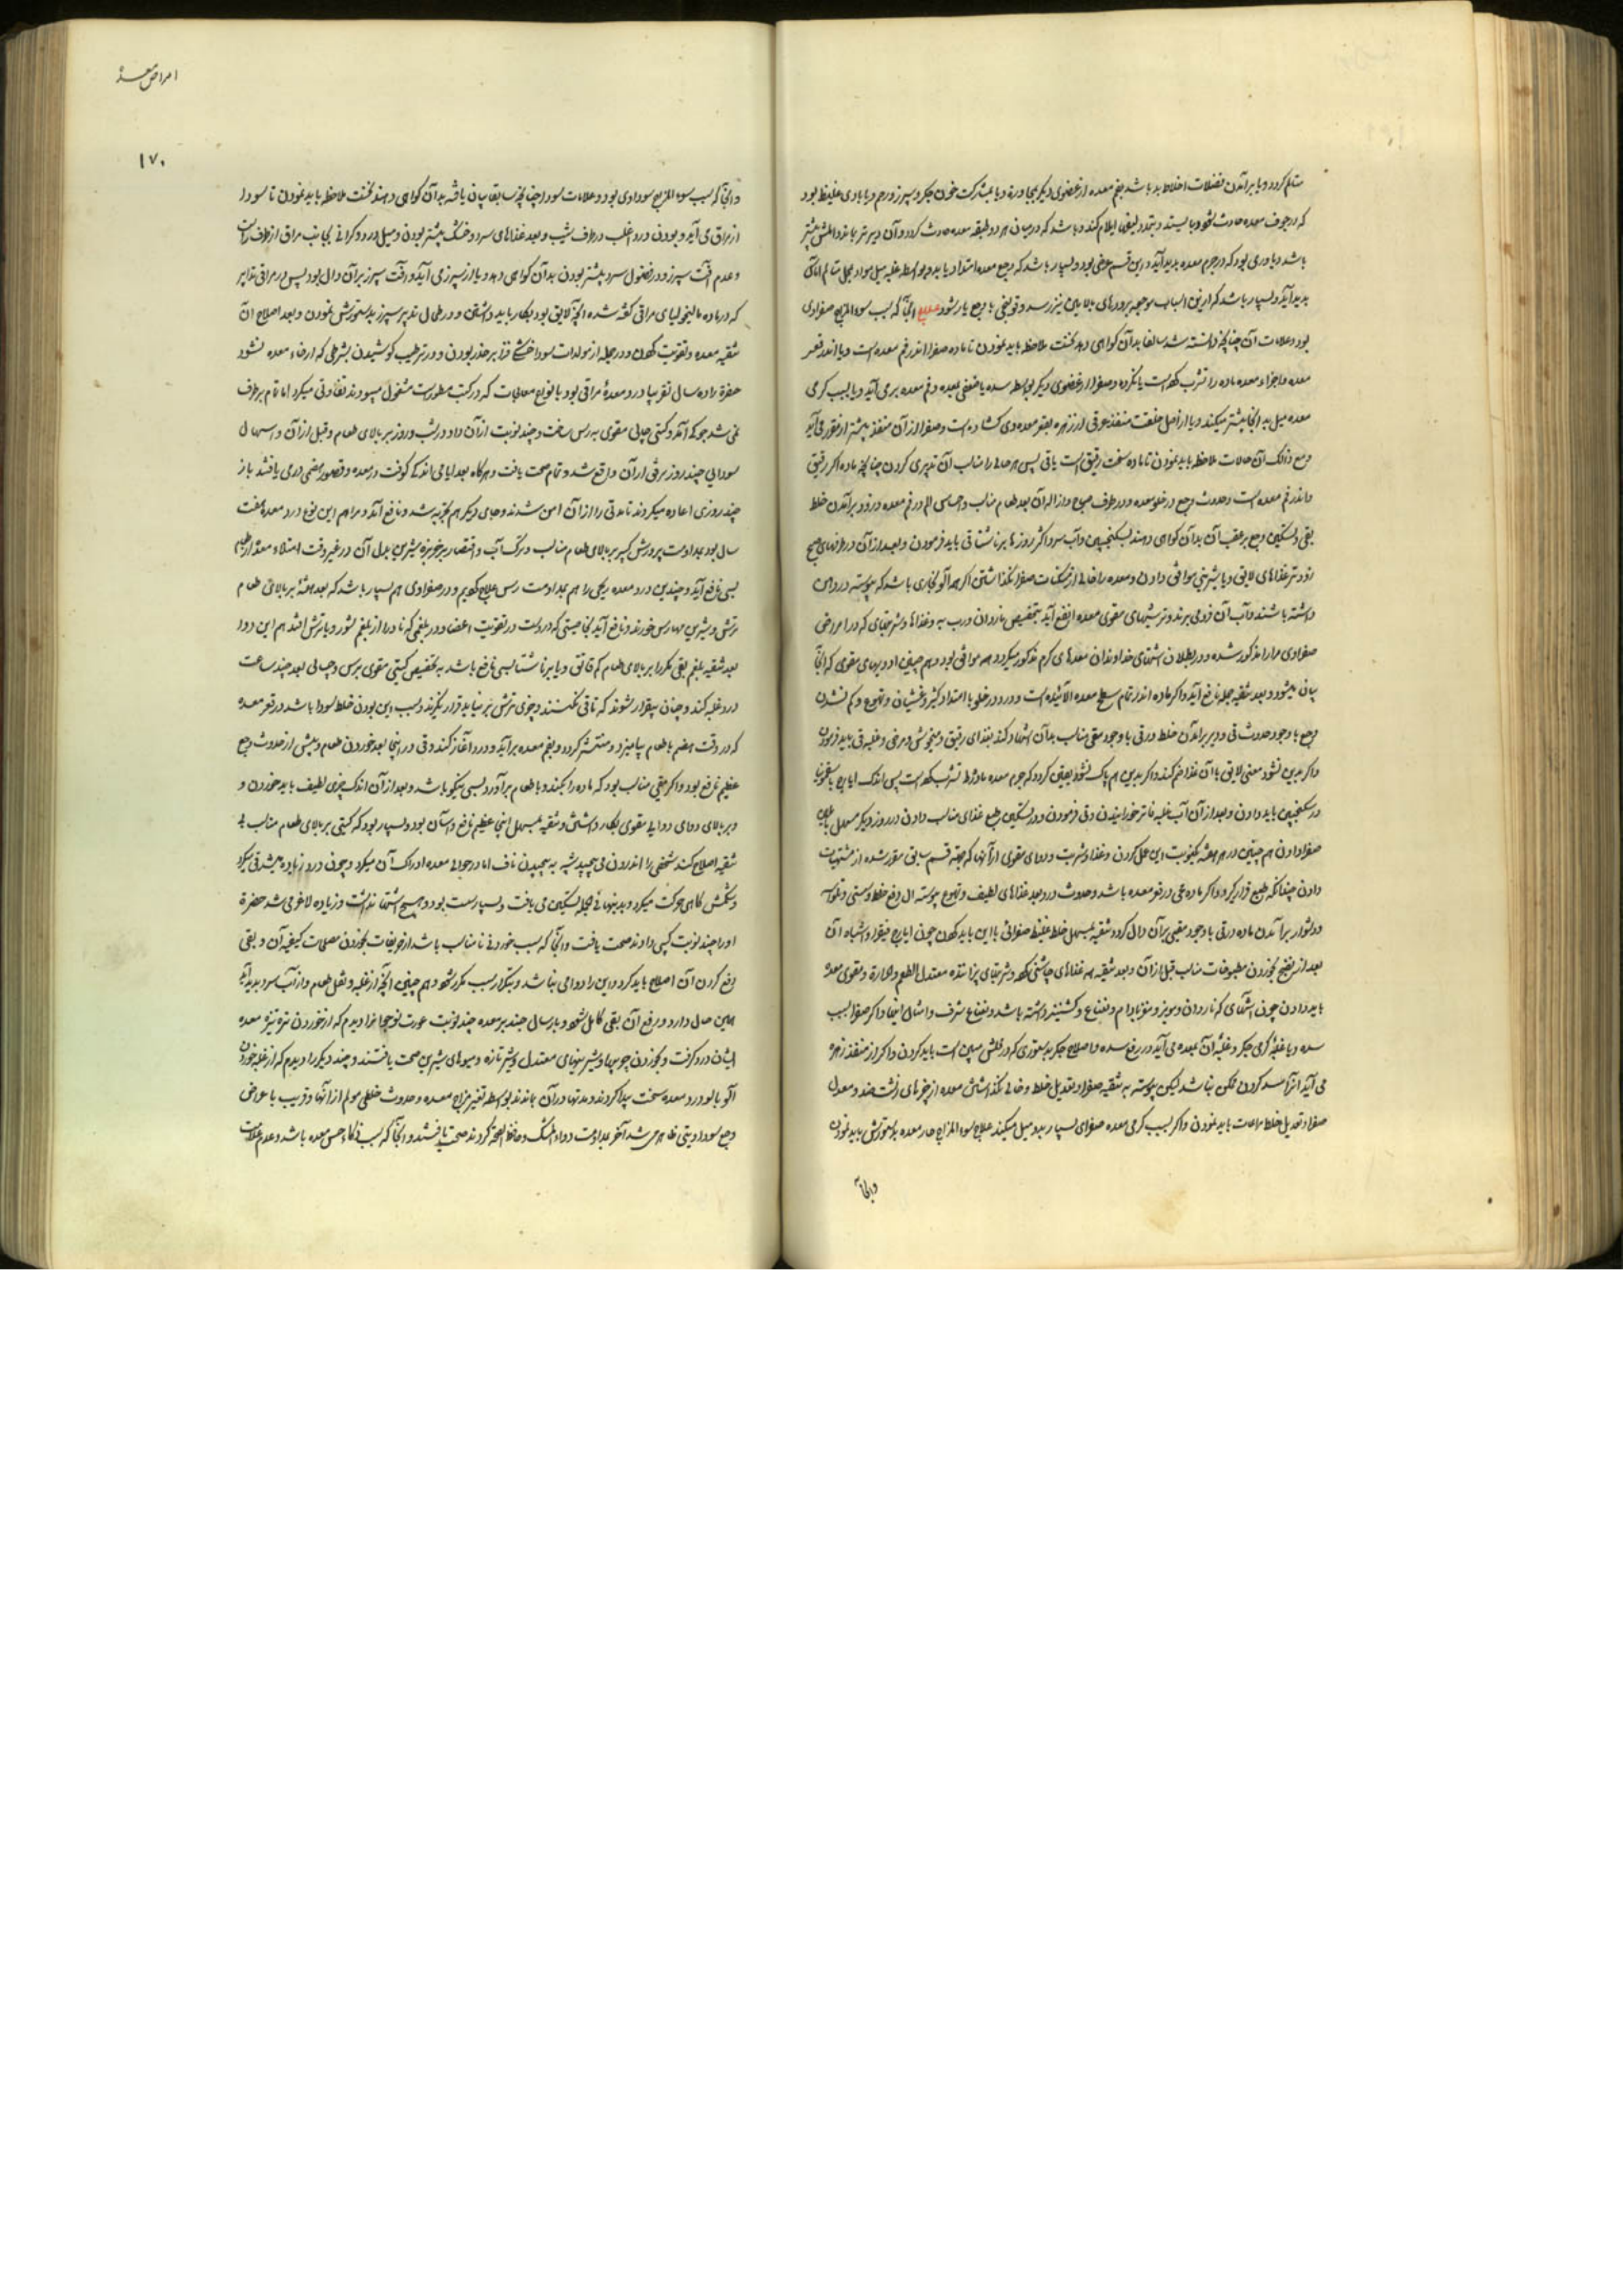 متالم کردد و یا برآمدن فضلات اخلاط بد باشد بفم معده از عضوی دیکر بمجاورة و یا بمشارکت چون جکر و سپرز و رحم و یا بادی غلیظ بود
که در جوف معده حادث شود و بایستد و بتمدد لیفها ایلام کند و باشد که در میان هر دو طبقه معده حادث کردد و آن دیرتر بماند و المش بیشتر
باشد و یا وری بود که در جرم معده پدید آید و این قسم عرضی بود و بسیار باشد که وجع معده امتداد یابد و بواسطه غلبه میل مواد بمحل متالم اماس
پدید آید و بسیار باشد که از این اسباب موجعه بدردهای بالا بین نیز رسد و قولنجی با وجع یار شود علاج آنجا که سبب سوء المزاج صفراوی
بود و علامات آن چنانچه دانسته شد سالفا بدان کواهی دهد نخست ملاحظه باید نمودن تا ماده صفرا اندر فم معده است و یا اندر قعر
معده و اجزاء معده ماده را تشرب کرده است یا نکرده و صفرا از عضوی دیکر بواسطه سده یا ضعفی بمعده و فم معده بر می آید و یا بسبب کرمی
معده میل به انجا بیشتر میکند و یا از اصل خلقت منفذ عرقی از زهره بقعر معده وی کشاده است و صفرا از آن منفذ بیشتر از مقرر می آید
و مع ذالک آن حالات ملاحظه باید نمودن تا ماده سخت رقیق است یا نی پس هر حالی را مناسب آن تدبیری کردن چنانچه ماده اکر رقیق
و اندر فم معده است و حدوث وجع در خلو معده و در طرف صباح و ازاله آن بعد طعام مناسب و احساس الم در فم معده در زود برآمدن خلط
بقی و تسکین وجع بر عقب آن بدان کواهی دهند بسکنجبین و آب سرد اکثر روزها بر ناشتا قی باید فرمودن و بعد از آن در طرفهای صبح
زودتر غذاهای لایق و یا شیرینی موافق دادن و معده را خالی از مسکنات صفرا نکذاشتن اکر همه آلو بخاری باشد که پیوسته در دهن
داشته باشند و آب آن فرو می برند و ترشیهای مقوی معده انفع آید بتخصیص ناردان و رب به و غذاها و شربتهای که در امراض
صفراوی مرارا مذکور شده و در بطلان اشتهای خداوندان معدهای کرم مذکور میکردد همه موافق بود و هم چنین ادویهای مقوی که آنجا
بیان میشود و بعد تنقیه جمله نافع آید و اکر ماده اندر تمام سطح معده آلائیده است و درد در خلو با امتداد کثیر و غشیان و تهوع و کم نشدن
وجع با وجود حدوث قی و دیر برآمدن خلط در قی با وجود مقی مناسب بدان اشهاد کند بغذای رقیق و منجوش و مرخی و غلبه قی باید فرمودن
و اکر بدین نشود مقی لایق با آن غذا ضم کند و اکر بدین هم پاک نشود یقین کردد که جرم معده ماده را تشرب کرده است پس اندک ایارج با سقمونیا
در سکنجبین باید دادن و بعد از آن آب غلبه فاتر خورانیدن و قی فرمودن و در تسکین طبع غذای مناسب دادن و در روز دیکر مسهل
صفرا دادن هم چنین در هر هفته یکنوبت این عمل کردن و غذا و شربت و دوای مقوی از آنها که بجهة قسم سابق مقرر شده از مشتهیات
دادن چندانکه طبع قرار کیرد و اکر ماده غمی در قعر معده باشد و حدوث درد بعد غذاهای لطیف و تهوع پیوسته
و دشوار برآمدن ماده در قی با وجود مقیی بر آن دال کردد تنقیه بمسهل خلط غلیظ صفرائی با این باید کردن چون ایارج فیقرا و اشباه آن
بعد از نضج بخوردن مطبوخات مناسب قبل از آن و بعد تنقیه همه غذاهای چاشنی کرده و شربتهای پزاننده معتدل الطعم و الحرارة و مقوی معده
باید دادن چون آشهای که ناردان و مویز و مغز بادام و نعناع و کشنیز داشته باشد و نعناع مشرف و امثال اینها و اکر صفرا بسبب
سده و یا غلبه کرمی جکر و غلبه آن بمعده می آید در رفع سده و اصلاح جکر بدستوری که در محلش مبین است باید کردن و اکر از منفذ زهره
می آید آنرا سد کردن ممکن نباشد لیکن پیوسته به تنقیه صفرا و تعدیل خلط و خالی نکذاشتن معده از چیزهای زفت ضد و معدل
صفرا و تعدیل خلط مراعات باید نمودن و اکر بسبب کرمی معده صفرای بسیار بدو میل میکند علاج سوء المزاج حار معده بدستورش باید نمودن
و آنجا
امراض معده
۱۷۰
و آنجا که سبب سوء المزاج سوداوی بود و علامات سودا چنانچه سابقا بیان یافته بدان کواهی دهند نخست ملاحظه باید نمودن تا سودا
از مراق می آید و بودن درد اغلب در طرف شیب و بعد غذاهای سرد و خشک بیشتر بودن و میل درد و کرانی بجانب مراق از طرف راست
و عدم آفت سپرز و در فصول سرد بیشتر بودن بدان کواهی دهد و یا از سپرز می آید و آفت سپرز بر آن دال بود پس در مراقی تدابیر
که در ماده مالیخولیای مراقی کفته شده آنچه لایق بود بکار باید داشتن و در طحال تدبیر سپرز بدستورش نمودن و بعد اصلاح آن
تنقیه معده و تقویت کردن و در جمله از مولدات سودا و خشکی فزا بر حذر بودن و در ترطیب کوشیدن بشرطی که ارخاء معده نشود
حضرة را ده سال تقریبا درد معده مراقی بود با انواع معالجات که در کتب مسطورست مشغول میبودند تفاوتی میکرد اما تمام برطرف
نمی شد چونکه آنکه وکشی چلپی مقوی به رس ساخت و چند نوبت از آن داد در شب و روز بر بالای طعام و قبل از آن و اسهال
سودایی چند روز برقی از آن واقع شد و تمام صحت یافت و هر کاه بعد ایامی اندکی کوفت در معده و قصور هضمی درمی یافتند باز
چند روزی اعاده میکردند تا مدتی را از آن امن شدند و جای دیکر هم تجربه شد و نافع آمد و مرا هم این نوع درد معده هفت
سال بود بمداومت پرورش کبیر بر بالای طعام مناسب و ترک آب و اقتصار بر خربزه شیرین بدل آن در غیر وقت امتلاء معده از طعام
بسی نافع آید و چندین درد معده ریحی را هم بمداومت رس علاج کردیم و در صفراوی هم بسیار باشد که بعد هفته بر بالای طعام
ترش و شیرین مهارس خورند و نافع آید بخاصیتی که در دست در تقویت اعضا و در بلغمی که نادرا از بلغم شور و یا ترش افتد هم این دوا
بعد تنقیه بلغم بقی مکرر ابر بالای طعام که قانق و یا بر ناشتا بسی نافع باشد به تخصیص کشتی مقوی برس و چپانی بعد چند ساعت
درد غلبه کند و چنان بیقرار شوند که تا قی نکنند و چیزی ترش بر نیاید قرار نکیرند و سبب این بودن خلط سودا باشد در قعر معده
که در وقت هضم با طعام بیامیزد و منتشر کردد و بفم معده برآید و درد آغاز کند و قی در اینجا بعد خوردن طعام و پیش از حدوث وجع
عظیم نافع بود و اکر مقیی مناسب بود که ماده را بکند و با طعام برآورد بسی نیکو باشد و بعد از آن اندک چیزی لطیف باید خوردن و
و بر بالای دوای دوایه مقوی بکار داشتن و تنقیه بمسهل اینجا عظیم نافع و آسان بود و بسیار بود که کشتی بر بالای طعام مناسب بی
تنقیه اصلاح کند شخصی را اندرون می پیچید شبیه به پیچیدن ناف اما در حوالی معده ادراک آن میکرد و چون درد زیاده میشد قی میکرد
و شکمش کاهی حرکت میکرد و بدینها فی الجمله تسکین می یافت و بسیار سست بود و هیچ اشتها نداشت و زیاده لاغر می شد حضرة
او را چند نوبت کپی دادند صحت یافت و آنجا که سبب خوردنی نامناسب باشد از حریفات بخوردن مصلحات کیفیه آن و بقی
رفع کردن آن اصلاح باید کرد و این را دوامی نباشد و بتکرار سبب مکرر شود و هم چنین آنچه از غلبه و ثقل طعام و از آب سرد پدید آید
همین حال دارد و رفع آن بقی کامل شود و با رسال چند بر معده چند نوبت عورت نوجوانرا دیدم که از خوردن تره تیزه معده
ایشان درد کرفت و بخوردن چوبها و شیرینهای معتدل و شیر تازه و میوهای شیرین صحت یافتند و چند دیکر را دیدم که از غلبه خوردن
آلو بالو درد معده سخت پیدا کردند و مدتها در آن بماندند بواسطه تغیر مزاج معده و حدوث خلطی مولم از آنها و قریب با عوارض
وجع سوداویتی ظاهر می شد آخر بمداومت دواء المسک و حافظ الصحه کردند صحت یافتند و آنجا که سبب ذکاء حس معده باشد و عدم علامات